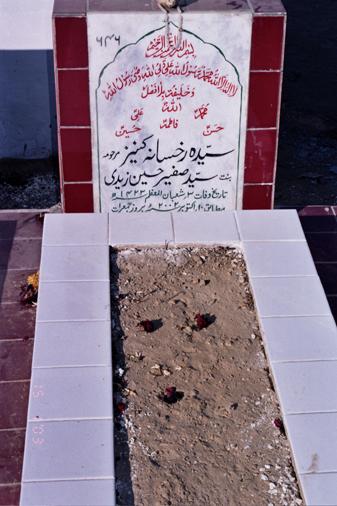 ۶۴۶
بسم اللہ الرحمن الرحیم
لا الہ الا اللہ محمد رسول اللہ علی ولی اللہ وصی رسول اللہ
وخلیفتہ بلا فصل
اللہ
محمد علی
فاطمہ
حسن حسین
سیدہ رخسانہ کنیز مرحومہ
بنت
سید صفیر حسین زیدی
تاریخ وفات ۳ شعبان المعظم ۱۴۲۳ھ
مطابق ۱۰ اکتوبر ۲۰۰۲ء بروز جمعرات